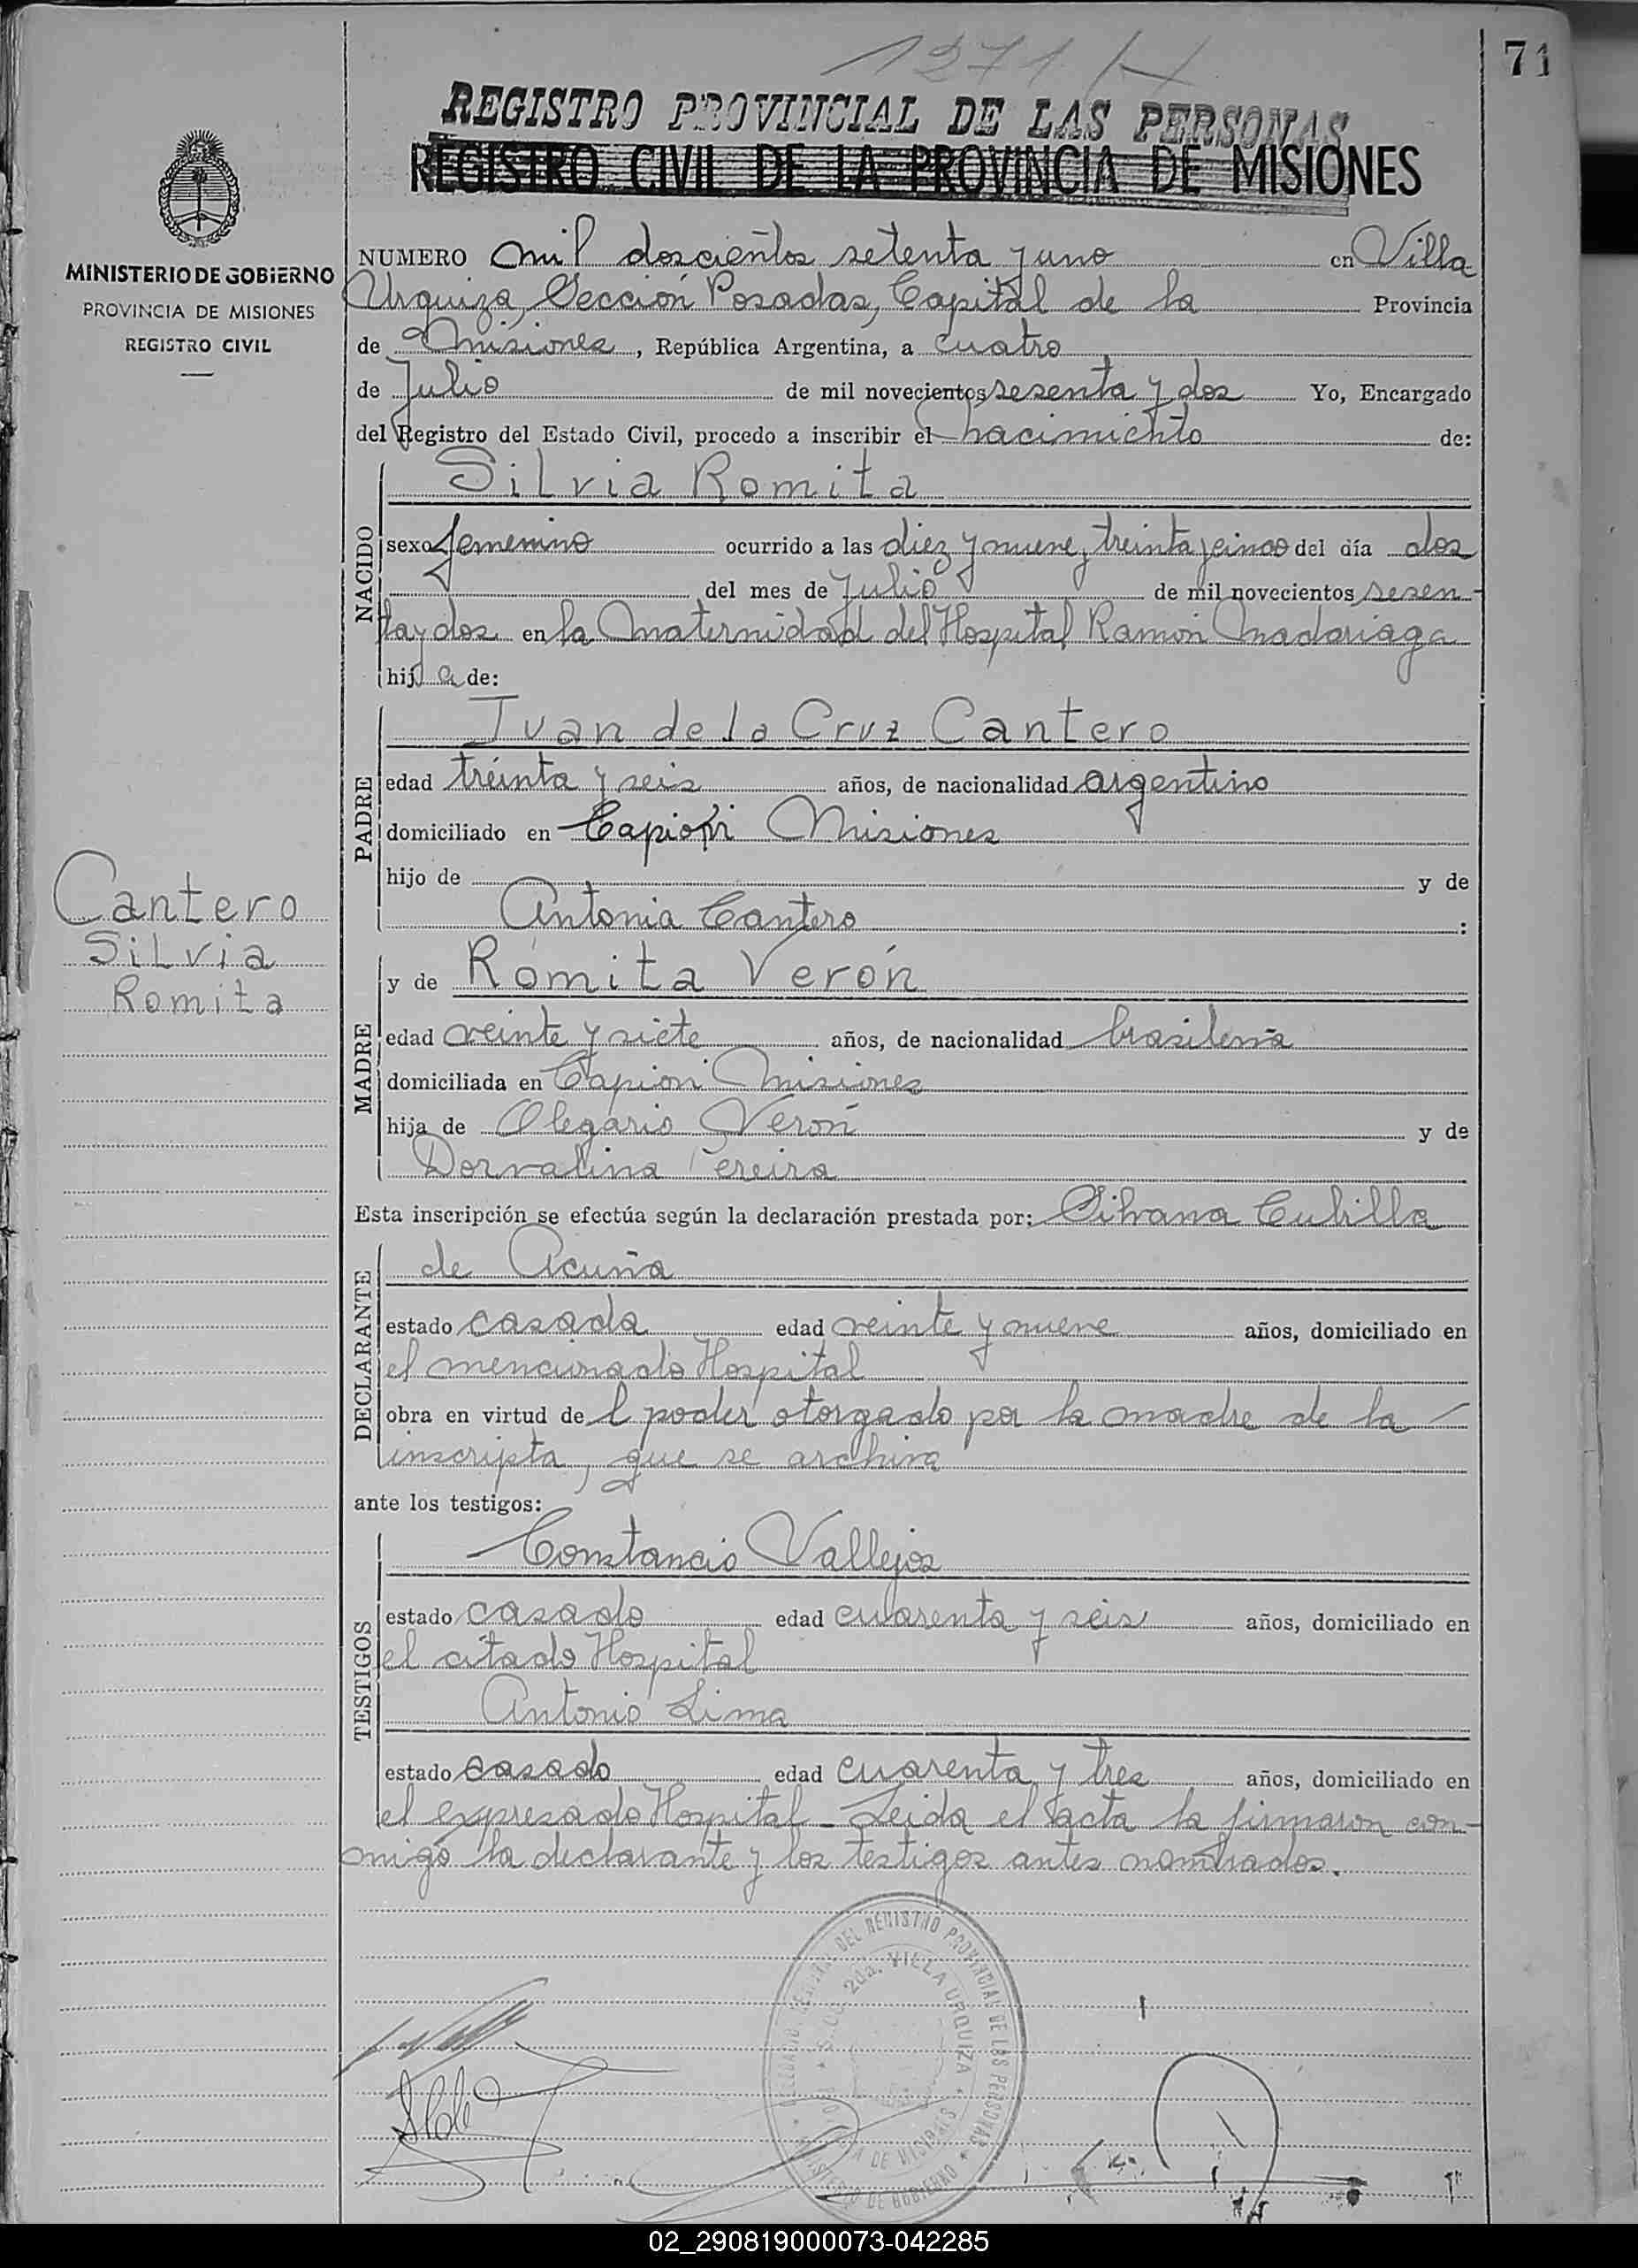 1271 H
71
REGISTRO PROVINCIAL DE LAS PERSONAS
REGISTRO CIVIL DE LA PROVINCIA DE MISIONES
MINISTERIO DE GOBIERNO
PROVINCIA DE MISIONES
REGISTRO CIVIL
NUMERO mil doscientos setenta y uno en Villa
Urquiza, Sección Posadas, Capital de la Provincia
de Misiones, República Argentina, a cuatro
de Julio de mil novecientos sesenta y dos Yo, Encargado
del Registro del Estado Civil, procedo a inscribir el nacimiento de:
NACIDO
Silvia Romita
sexo femenino ocurrido a las diez y nueve, treinta y cinco del día dos
del mes de Julio de mil novecientos sesen-
ta y dos en la Maternidad del Hospital Ramón Madariaga
hija de:
PADRE
Juan de la Cruz Cantero
edad treinta y seis años, de nacionalidad argentino
domiciliado en Capioví Misiones
hijo de y de
Antonia Cantero :
Cantero
Silvia
Romita
MADRE
y de Romita Verón
edad veinte y siete años, de nacionalidad brasileña
domiciliada en Capioví Misiones
hija de Olegario Verón y de
Dorvalina Pereira
Esta inscripción se efectúa según la declaración prestada por: Silvana Cubilla
DECLARANTE
de Acuña
estado casada edad veinte y nueve años, domiciliado en
el mencionado Hospital
obra en virtud del poder otorgado por la madre de la
inscripta, que se archiva
ante los testigos:
TESTIGOS
Constancio Vallejos
estado casado edad cuarenta y seis años, domiciliado en
el citado Hospital
Antonio Lima
estado casado edad cuarenta y tres años, domiciliado en
el expresado Hospital - Leida el acta la firmaron con-
migo la declarante y los testigos antes nombrados.
DEL REGISTRO PROVINCIAL DE LAS PERSONAS
2da. VILLA URQUIZA
DE MISIONES
MINISTERIO DE GOBIERNO
02_290819000073-042285